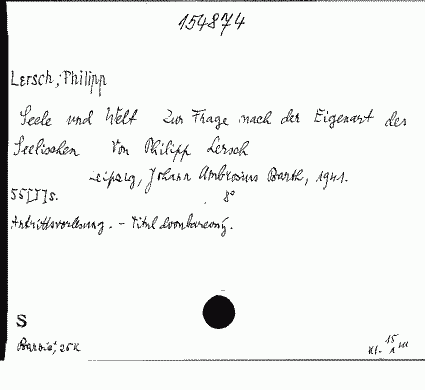 154874
Lersch, Philipp
Seele und Welt Zur Frage nach der Eigenart des
Seelischen Von Philipp Lersch
Leipzig, Johann Ambrosius Barth, 1941.
55[1]s. 8°
Antrittsvorlesung. - Titel
S
15
Kl. 1